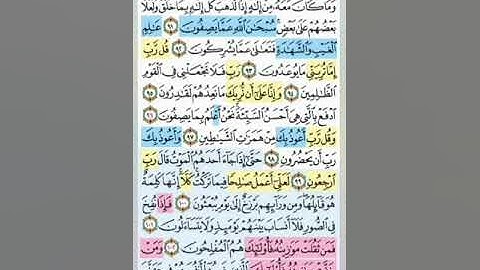 وَمَا كَانَ مَعَهُۥ مِنْ إِلَٰهٍ إِذًا لَّذَهَبَ كُلُّ إِلَٰهٍۭ بِمَا خَلَقَ وَلَعَلَا
بَعْضُهُمْ عَلَىٰ بَعْضٍ سُبْحَٰنَ ٱللَّهِ عَمَّا يَصِفُونَ ٩١ عَٰلِمِ
ٱلْغَيْبِ وَٱلشَّهَٰدَةِ فَتَعَٰلَىٰ عَمَّا يُشْرِكُونَ ٩٢ قُل رَّبِّ
إِمَّا تُرِيَنِّى مَا يُوعَدُونَ ٩٣ رَبِّ فَلَا تَجْعَلْنِى فِى ٱلْقَوْمِ
ٱلظَّٰلِمِينَ ٩٤ وَإِنَّا عَلَىٰٓ أَن نُّرِيَكَ مَا نَعِدُهُمْ لَقَٰدِرُونَ ٩٥
ٱدْفَعْ بِٱلَّتِى هِىَ أَحْسَنُ ٱلسَّيِّئَةَ نَحْنُ أَعْلَمُ بِمَا يَصِفُونَ ٩٦
وَقُل رَّبِّ أَعُوذُ بِكَ مِنْ هَمَزَٰتِ ٱلشَّيَٰطِينِ ٩٧ وَأَعُوذُ بِكَ
رَبِّ أَن يَحْضُرُونِ ٩٨ حَتَّىٰٓ إِذَا جَآءَ أَحَدَهُمُ ٱلْمَوْتُ قَالَ رَبِّ
ٱرْجِعُونِ ٩٩ لَعَلِّىٓ أَعْمَلُ صَٰلِحًا فِيمَا تَرَكْتُ كَلَّآ إِنَّهَا كَلِمَةٌ
هُوَ قَآئِلُهَا وَمِن وَرَآئِهِم بَرْزَخٌ إِلَىٰ يَوْمِ يُبْعَثُونَ ١٠٠ فَإِذَا نُفِخَ
فِى ٱلصُّورِ فَلَآ أَنسَابَ بَيْنَهُمْ يَوْمَئِذٍ وَلَا يَتَسَآءَلُونَ ١٠١
فَمَن ثَقُلَتْ مَوَٰزِينُهُۥ فَأُو۟لَٰٓئِكَ هُمُ ٱلْمُفْلِحُونَ ١٠٢ وَمَنْ